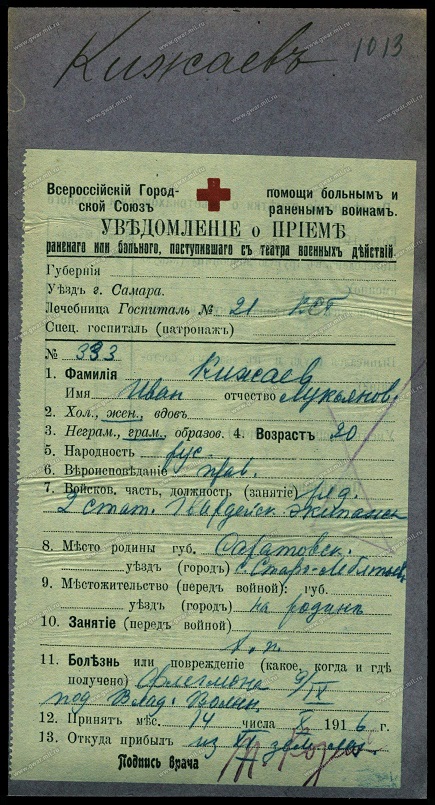 Кижаевъ 1013
Всероссійскій Город-
ской Союзъ
помощи больнымъ и
раненымъ воинамъ.
УВѢДОМЛЕНІЕ о ПРІЕМѢ
раненаго или больного, поступившаго съ театра военныхъ дѣйствій.
Губернія
Уѣздъ г. Самара.
Лечебница Госпиталь № 21
Спец. госпиталь (патронаж)
№ 333
1. Фамилія Кижаев
Имя Иван отчество Лукьянов.
2. Хол., жен., вдовъ
3. Неграм., грам., образов. 4. Возрастъ 20
5. Народность рус
6. Вѣроисповѣданіе прав.
7. Войсков. часть, должность (занятіе) ряд.
2 Гвардейск. экипажа
8. Мѣсто родины губ. Саратовск.
уѣздъ (городъ)
9. Мѣстожительство (передъ войной): губ.
уѣздъ (городъ) на родинѣ
10. Занятіе (передъ войной)
х. п.
11. Болѣзнь или поврежденіе (какое, когда и гдѣ
получено) Флегмона 9/IX
под Влад. Волын
12. Принятъ мѣс. 14 числа X 1916 г.
13. Откуда прибылъ из
Подпись врача
www.gwar.mil.ru